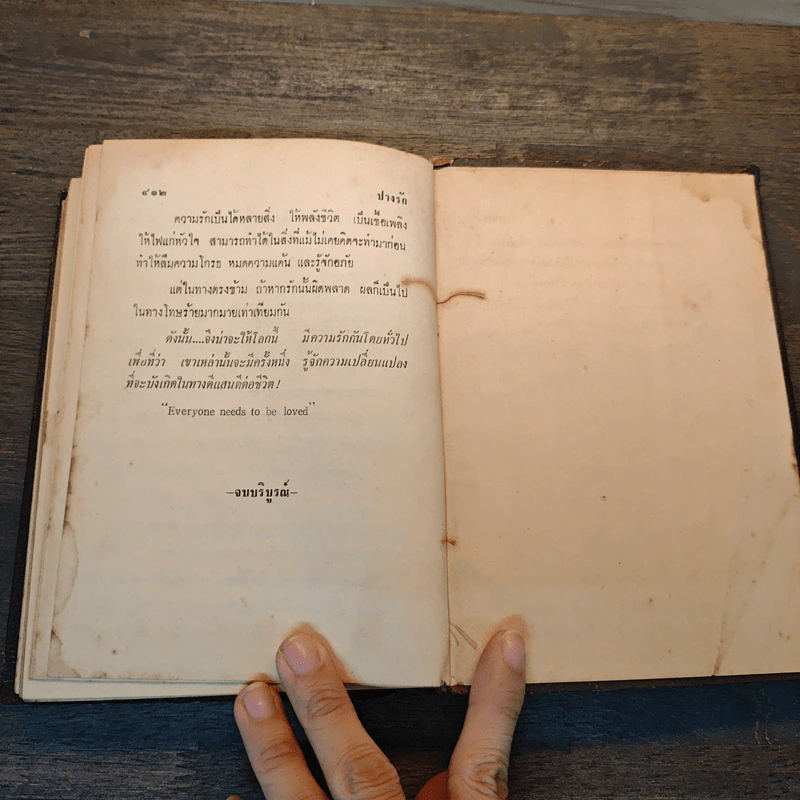 ๔๑๒
ปางรัก
ความรักเป็นได้หลายสิ่ง ให้พลังชีวิต เป็นเชื้อเพลิง
ให้ไฟแก่หัวใจ สามารถทำได้ในสิ่งที่แม้ไม่เคยคิดจะทำมาก่อน
ทำให้ลืมความโกรธ หมดความแค้น และรู้จักอภัย
แต่ในทางตรงข้าม ถ้าหากรักนั้นผิดพลาด ผลก็เป็นไป
ในทางโทษร้ายมากมายเท่าเทียมกัน
ดังนั้น....จึงน่าจะให้โลกนี้ มีความรักกันโดยทั่วไป
เพื่อที่ว่า เขาเหล่านั้นจะมีครั้งหนึ่ง รู้จักความเปลี่ยนแปลง
ที่จะบังเกิดในทางดีแสนดีต่อชีวิต!
"Everyone needs to be loved"
—จบบริบูรณ์—